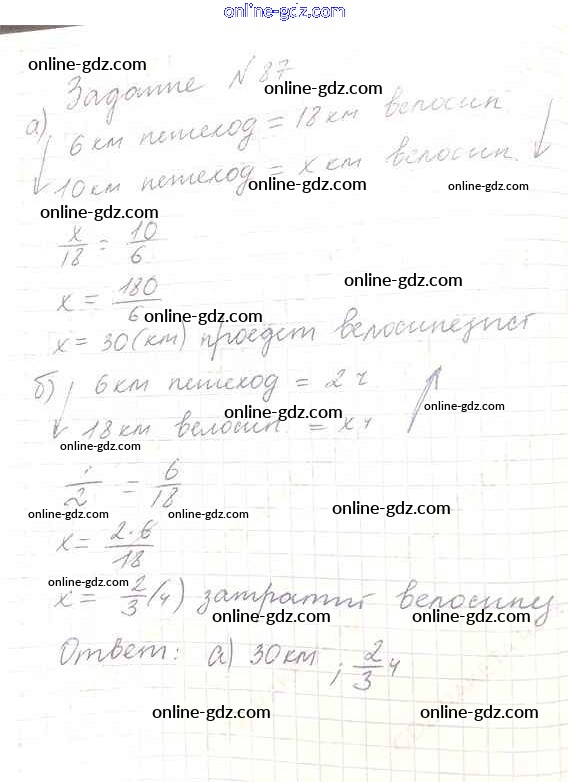 online-gdz.com
online-gdz.com
Задание N 87 online-gdz.com
а) 6 км пешеход = 18 км велосип.
online-gdz.com
10 км пешеход = x км велосип.
online-gdz.com online-gdz.com
online-gdz.com
x/18 = 10/6
online-gdz.com
x = 180/6
online-gdz.com
x = 30 (км) проедет велосипедист
online-gdz.com
б) 6 км пешеход = 2 ч
online-gdz.com online-gdz.com
18 км велосип. = x ч
online-gdz.com
/2 = 6/18
online-gdz.com online-gdz.com online-gdz.com
x = 2·6/18
online-gdz.com
x = 2/3 (ч) затратит велосипед
online-gdz.com online-gdz.com
Ответ: а) 30 км ; 2/3 ч
online-gdz.com online-gdz.com
online-gdz.com